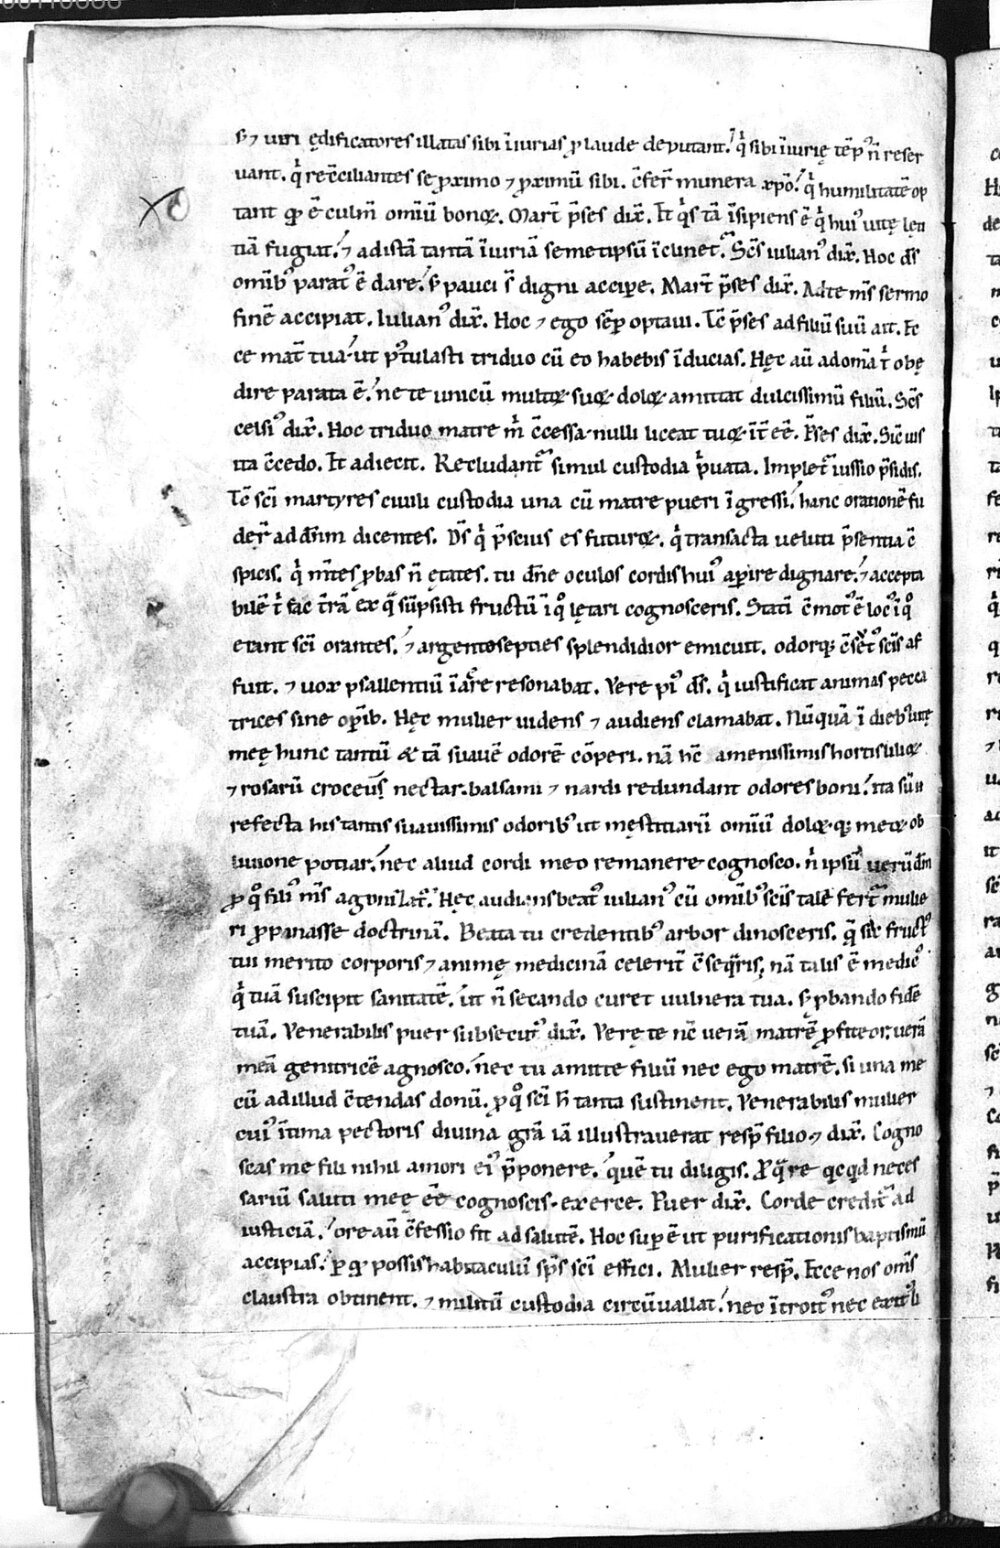 s; ⁊ uiri ędificatores illatas sibi īiurias ꝑ laude deputant. q̇ sibi īiurię tēp᷒ n̄ reser
uant. q̇ recēciliantes se ꝓximo ⁊ ꝓximū sibi. c̄fer̄ munera xp̄o. q̇ humilitatē op
tant qđ ē culm̄ omiū bonoꝝ. Mart̄ p̄ses dix̄. Et q̇s tā īsipiens ē q̇ hui᷒ uitę lęti
tiā fugiat. ⁊ ad istā tantā īiuriā semetipsū īclinet. Sc̄s iulian᷒ dix̄. Hoc ds̄
omīb᷒ parat᷒ ē dare. s; pauci s̄ digni accipe. Mart̄ p̄ses dix̄. Ad te m̄s sermo
finē accipiat. Iulian᷒ dix̄. Hoc ⁊ ego sēp optaui. Tc̄ p̄ses ad filiū suū ait. Ec
ce mat̄ tua ut p᷒tulasti triduo cū eo habebis īducias. Hęc aū ad omā t̄ obę
dire parata ē. ne te unicū multoꝝ suoꝝ doloꝝ amittat dulcissimū filiū. Sc̄s
celsi᷒ dix̄. Hoc triduo matre m̄ c̄cessa nulli liceat tuoꝝ īt̄ eē. P̄ses dix̄. Sic̄ uis
ita c̄cedo. Et adiecit. Recludant᷑ simul custodia ṗuata. Implet᷑ iussio p̄sidis.
Tc̄ sc̄i martyres ciuili custodia una cū matre pueri īgressi. hanc orationē fu
der̄ ad dn̄m dicentes. Ds̄ q̇ p̄scius es futuroꝝ. q̇ transacta ueluti p̄sentia c̄
spicis. q̇ m̄tes ꝓbas n̄ ętates. tu dn̄e oculos cordis hui᷒ aꝑire dignare. ⁊ accepta
bilē t̄ fac t̄rā ex q̄ sūpsisti fructū ī qͦ lętari cognosceris. Statī c̄mot᷒ ē loc᷒ ī qͦ
erant sc̄i orantes. ⁊ argento septies splendidior emicuit. odorqꝫ c̄suet᷒ sc̄is af
fuit. ⁊ uox psallentiū ī aere resonabat. Vere pi᷒ ds̄. q̇ iustificat animas pecca
trices sine oꝑib᷒. Hęc mulier uidens ⁊ audiens clamabat. Nūquā ī dieb᷒ uitę
meę hunc tantū & tā suauē odorē cōperi. nā hc̄ amenissimis hortis lilioꝝ
⁊ rosarū croceus nectar. balsami ⁊ nardi redundant odores boni. ita sū
refecta his tantis suauissimis odorib᷒ ut męstitiarū omiū doloꝝqꝫ meoꝝ ob
liuione potiar. nec aliud cordi meo remanere cognosco. n̄ ipsū uerū dm̄
ꝓ qͦ fili᷒ m̄s agoniźat᷑. Hęc audiens beat᷒ iulian᷒ cū omīb᷒ sc̄is talē fert᷑ mulie
ri ꝓpinasse doctrinā. Beata tu credentib᷒ arbor dinosceris. q̄ sic̄ fruct᷒
tui merito corporis ⁊ animę medicinā celerit̄ c̄seq̄ris. nā talis ē medic᷒
q̇ tuā suscipit sanitatē. ut n̄ secando curet uulnera tua. s; ꝓbando fidē
tuā. Venerabilis puer subsecut᷒ dix̄. Verę te nc̄ uerā matrē ꝓfiteor. uerā
meā genitricē agnosco. nec tu amitte filiū nec ego matrē. si una me
cū ad illud c̄tendas donū. ꝓ qͦ sc̄i h̄ tanta sustinent. Venerabilis mulier
cui᷒ ītima pectoris diuina grā iā illustrauerat resp̄ filio ⁊ dix̄. Cogno
scas me fili nihil amori ei᷒ p̄ponere. quē tu diligis. Ꝓ q̄re qcqd neces
sariū saluti meę eē cognoscis. exerce. Puer dix̄. Corde credit᷑ ad
iusticiā. ore aū c̄fessio fit ad salutē. Hoc suꝑ ē ut purificationis baptismū
accipias. ꝑ qđ possis habitaculū sps̄ sc̄i effici. Mulier resp̄. Ecce nos om̄s
claustra obtinent. ⁊ militū custodia circūuallat. nec ītroit᷒ nec exit᷒ li